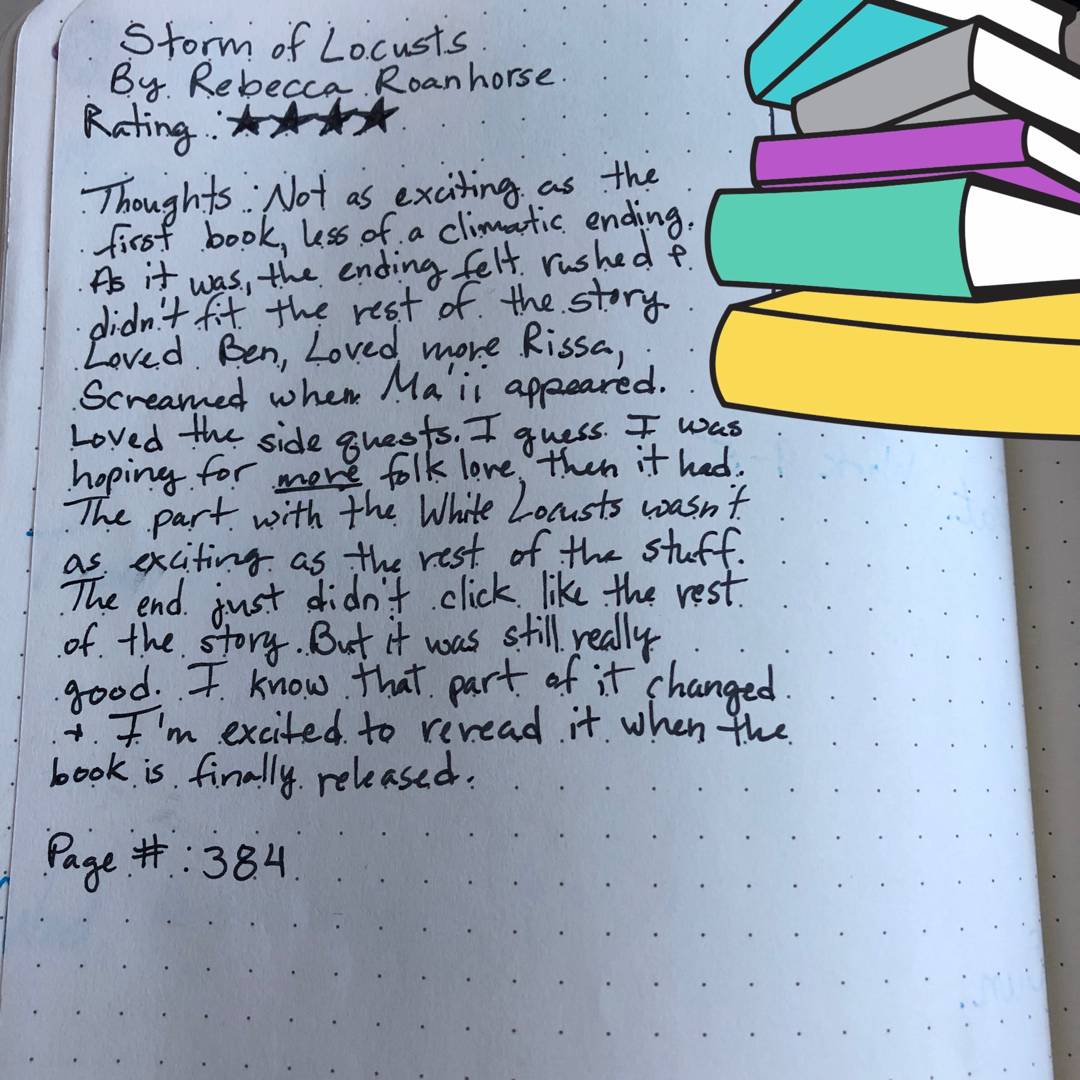 Storm of Locusts
By Rebecca Roanhorse
Rating: ★★★★
Thoughts: Not as exciting as the
first book, less of a climatic ending.
As it was, the ending felt rushed &
didn't fit the rest of the story
Loved Ben, Loved more Rissa,
Screamed when Ma'ii appeared.
Loved the side quests. I guess I was
hoping for more folk love then it had.
The part with the White Locusts wasn't
as exciting as the rest of the stuff.
The end just didn't click like the rest
of the story. But it was still really
good. I know that part of it changed
+ I'm excited to reread it when the
book is finally released.
Page #: 384